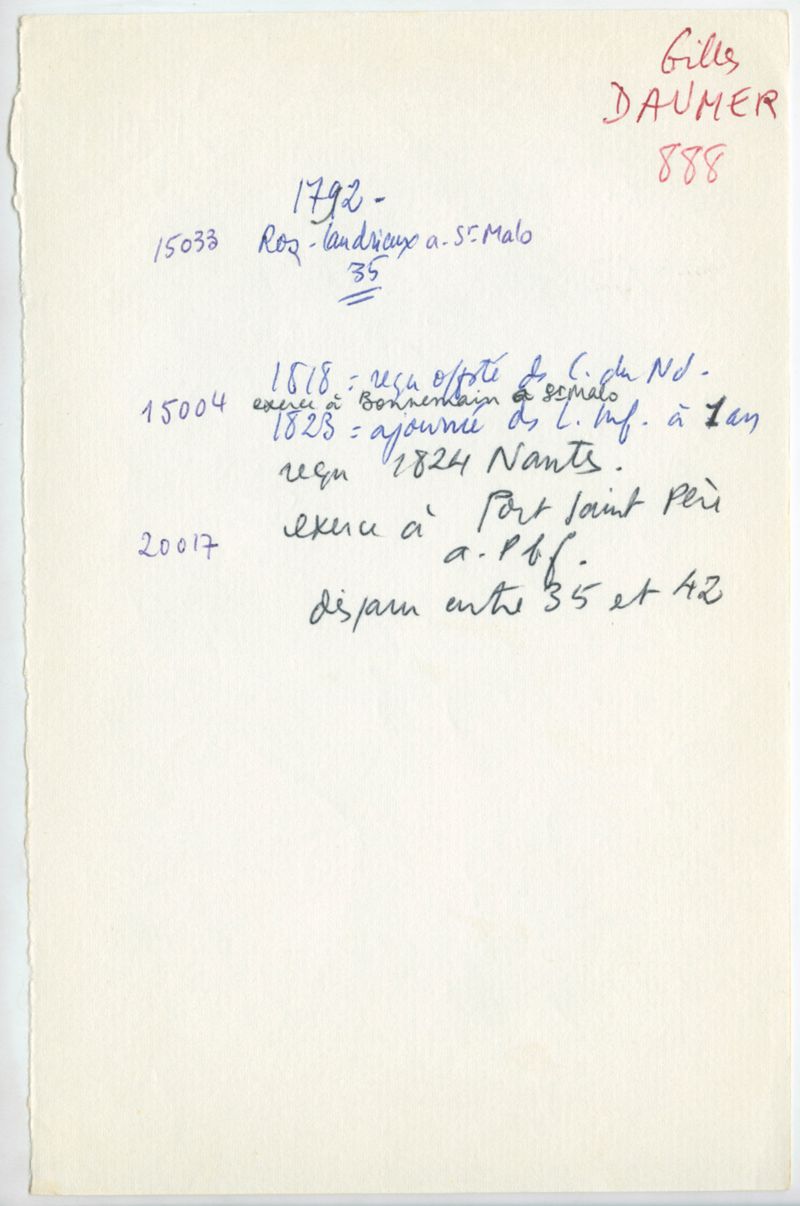 Gilles
DAUMER
888
1792 -
15033 Roz-Landrieux a. St Malo
35
1818 = reçu offté ds C. du Nd.
15004 exerce à Bonnemain a St Malo
1823 = ajourné ds L. Inf. à 1 an
reçu 1824 Nantes.
exerce à Port Saint Père
20017 a. Pbf.
disparu entre 35 et 42